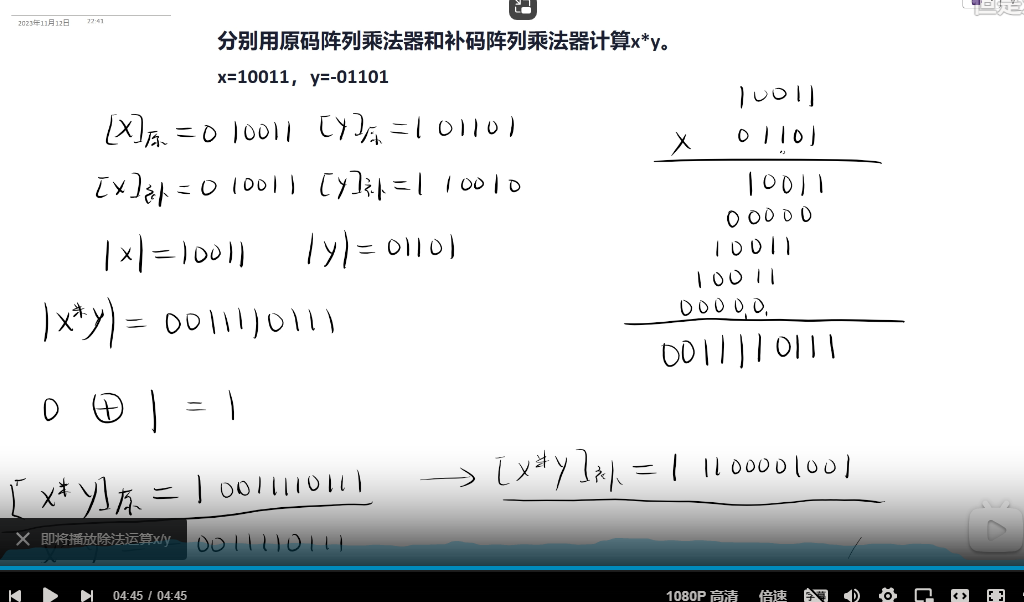 2023年11月12日 22:41
分别用原码阵列乘法器和补码阵列乘法器计算x*y。
x=10011，y=-01101
[X]原=0 10011 [Y]原=1 01101
[X]补=0 10011 [Y]补=1 10010
|x|=10011 |y|=01101
|x*y|=0011110111
0⊕1=1
[x*y]原=1 0011110111 → [x*y]补=1 1100001001
10011
× 01101
10011
00000
10011
10011
00000
0011110111
0011110111
即将播放除法运算x/y
04:45 / 04:45
1080P 高清 倍速 字幕